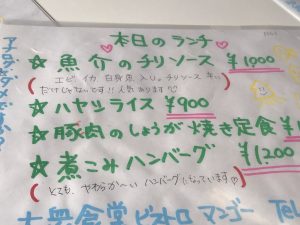 本日のランチ
☆ 魚介のチリソース ¥1000
エビ イカ 白身魚 入り。チリソース
だけじゃないです!! 人気あります
☆ ハヤシライス ¥900
☆ 豚肉のしょうが焼き定食
☆ 煮こみハンバーグ ¥1200
とても、やわらか〜い ハンバーグになっています
大衆食堂ビストロ マンゴー Tel